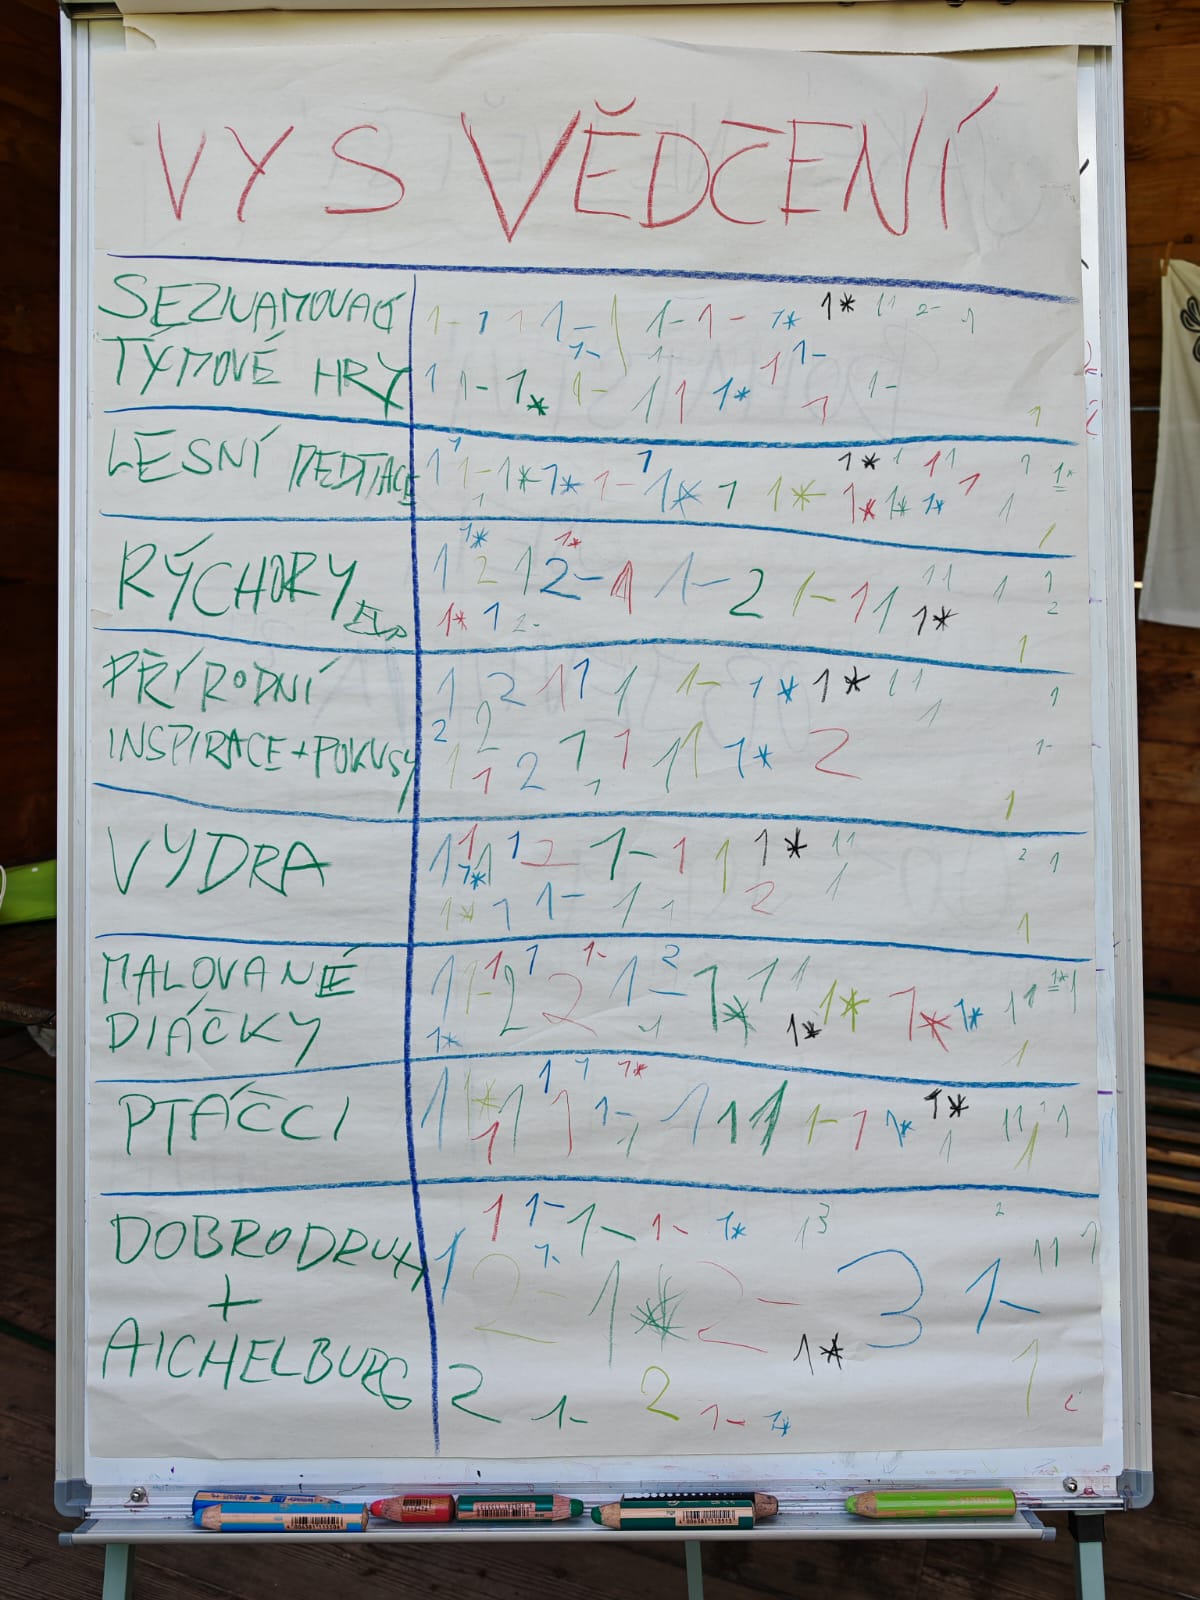 VYSVĚDČENÍ
SEZNAMOVACÍ
TÝMOVÉ HRY
1- 1 1 1- 1 1- 1 - 1* 1* 11 2- 1
1- 1- 1 1-
1 1- 1* 1- 1 1 1* 1 1-
1
LESNÍ MEDITACE
1 1 1- 1* 1* 1- 1 1* 1 1* 1* 1 1 1 1 1 1*
1 1* 1* 1* 1
1
RÝCHORY
1* 1*
1 2 1 2- 1 1- 2 1- 1 1 11 1 1
1* 1 2- 1* 2
1
PŘÍRODNÍ
INSPIRACE + POKUSY
1 2 1 1 1 1- 1* 1* 11 1
2 2 1
1 1 2 1 1 1 11 1* 2 1-
1
VYDRA
1 1 1 1 2 1- 1 1 1* 11 2 1
1*
1* 1 1- 1 1 2 1
1
MALOVANÉ
DIÁČKY
1 1- 1 2 1 2 1- 1- 2 1* 1 1 1* 1* 1* 11 1* 1
1* 1 1*
1
PTÁČCI
1 1 1*
1 1* 1 1 1- 1 1 1 1- 1 1* 1* 11 1 1
1 1 1 1
DOBRODRUH
+
AICHELBURG
1 1- 1- 1- 1* 1 3 2
1 1- 11 1
2- 1* 2- 3 1-
1* 1
2 1- 2 1- 1* 2